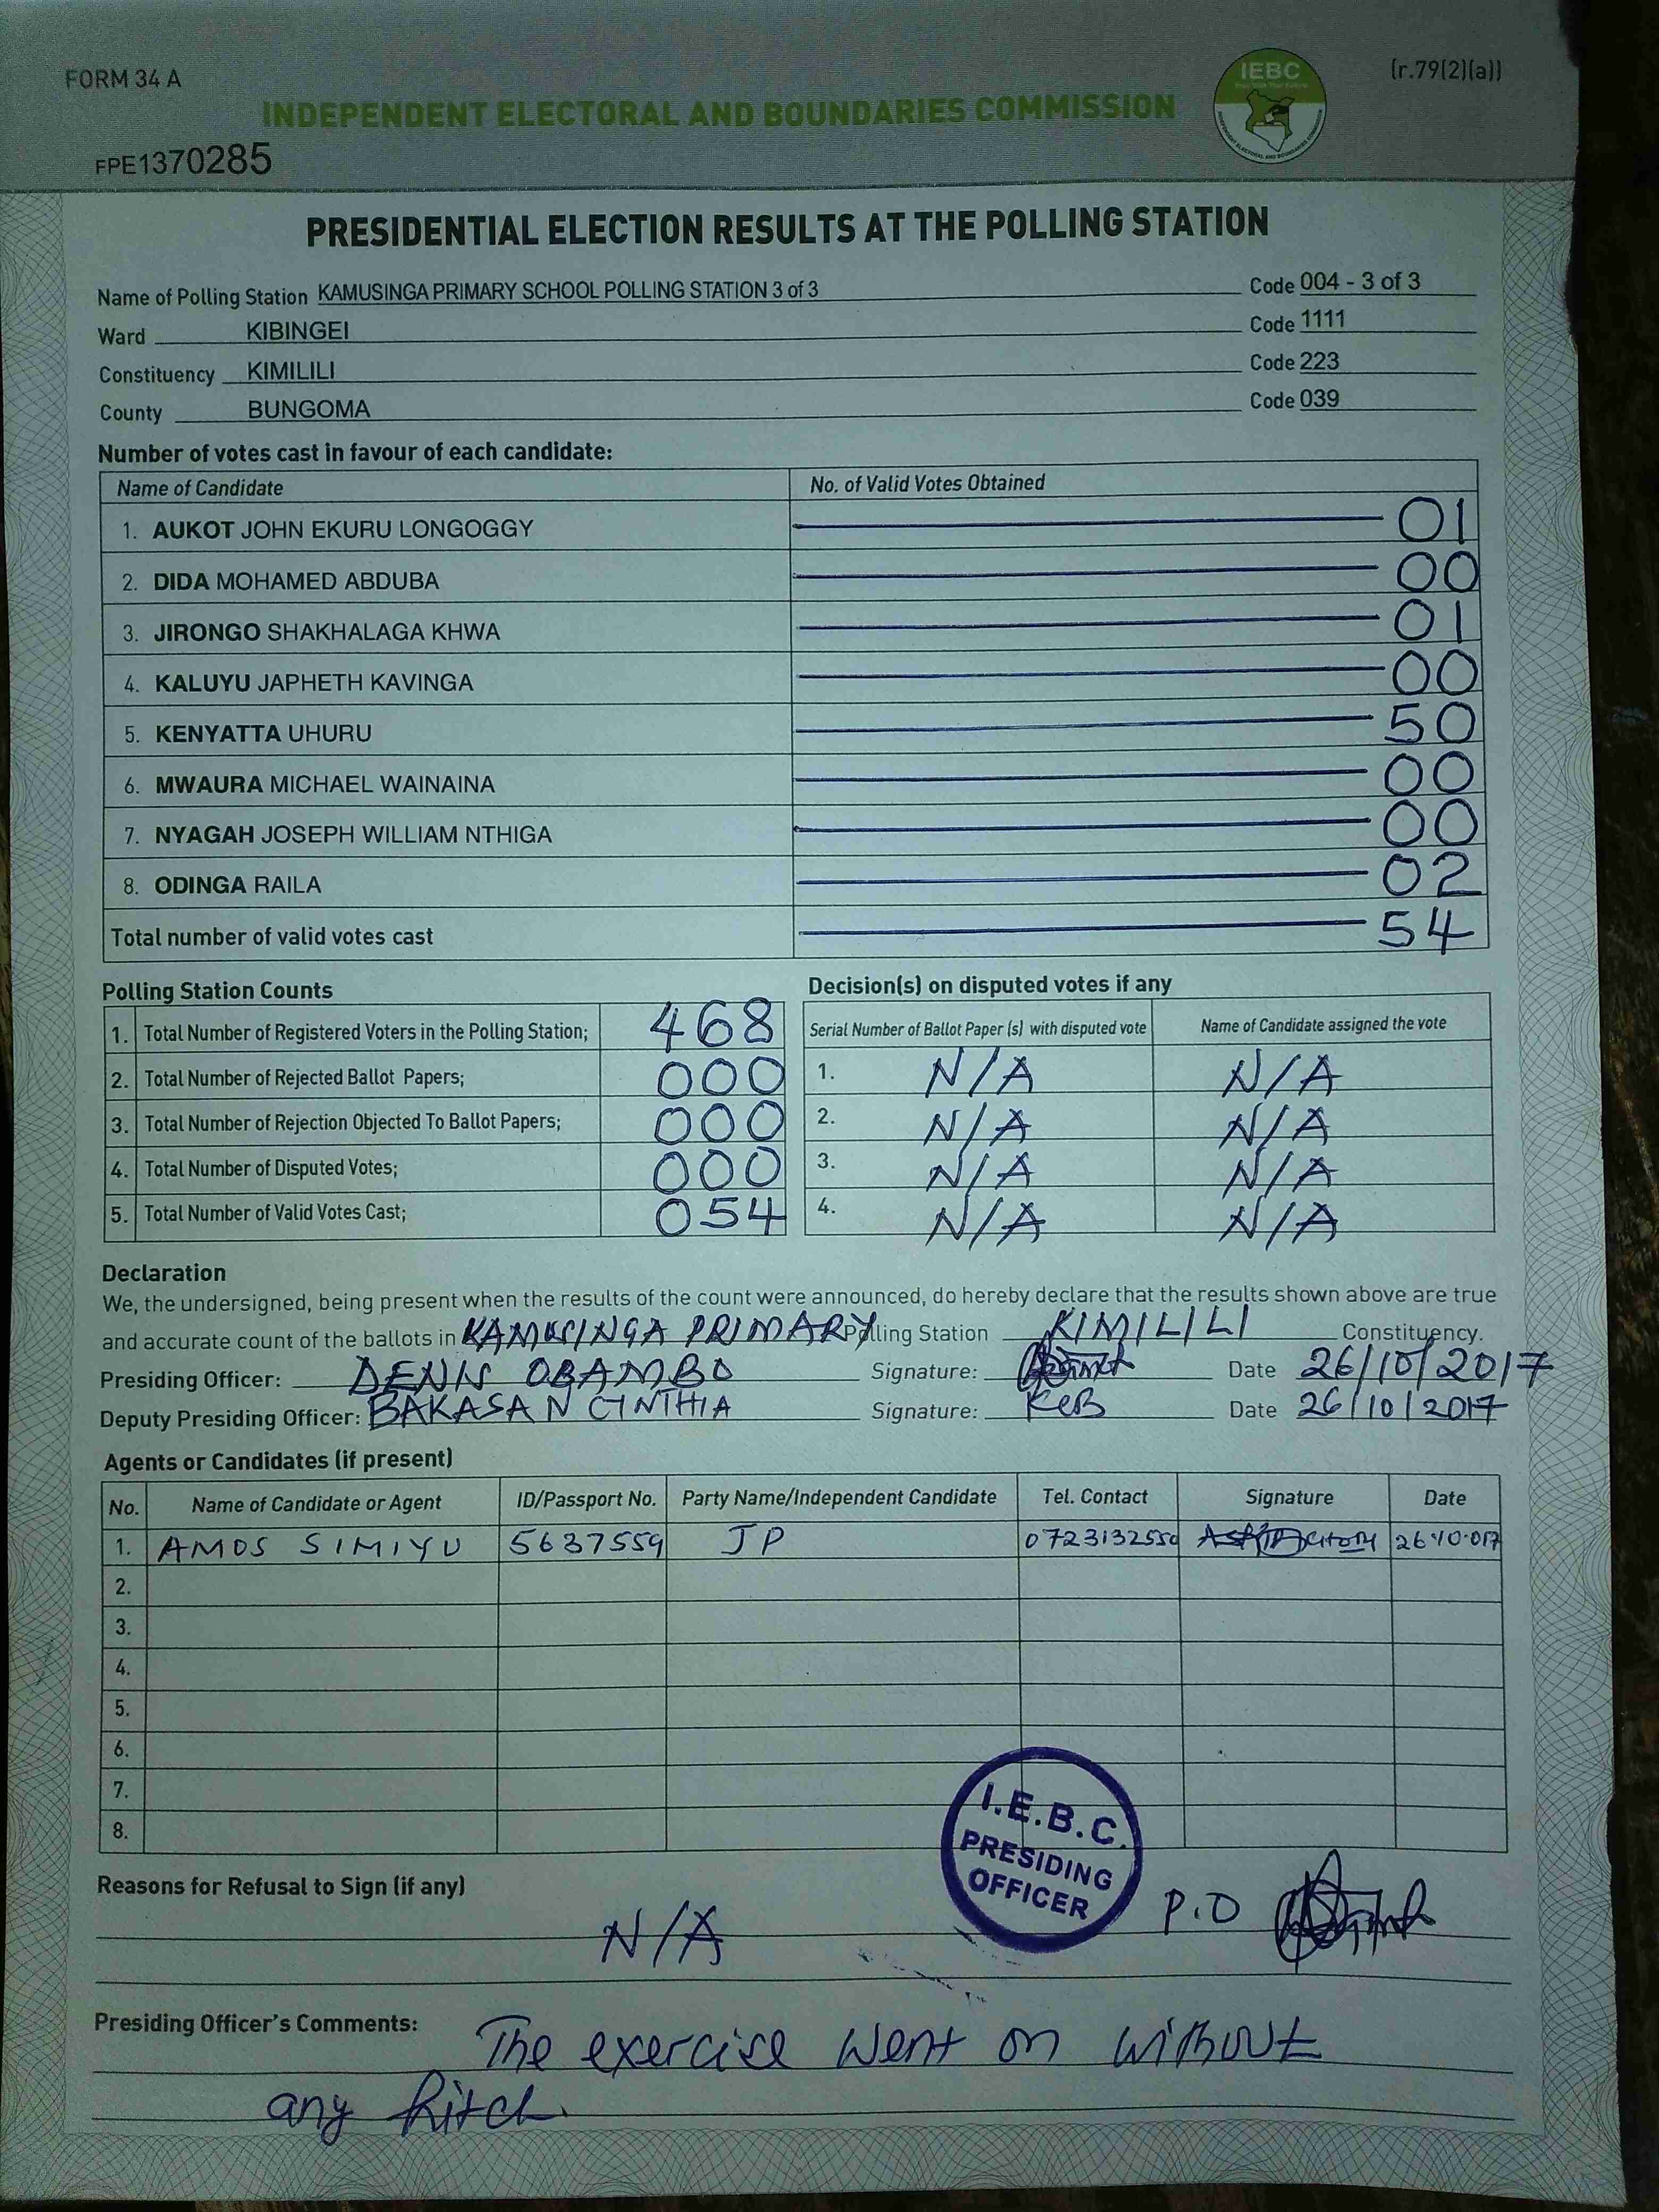 FORM 34 A
(r.79(2)(a))
IEBC
INDEPENDENT ELECTORAL AND BOUNDARIES COMMISSION
FPE1370285
PRESIDENTIAL ELECTION RESULTS AT THE POLLING STATION
Name of Polling Station KAMUSINGA PRIMARY SCHOOL POLLING STATION 3 of 3 Code 004 - 3 of 3
Ward KIBINGEI Code 1111
Constituency KIMILILI Code 223
County BUNGOMA Code 039
Number of votes cast in favour of each candidate:
Name of Candidate No. of Valid Votes Obtained
1. AUKOT JOHN EKURU LONGOGGY 01
2. DIDA MOHAMED ABDUBA 00
3. JIRONGO SHAKHALAGA KHWA 01
4. KALUYU JAPHETH KAVINGA 00
5. KENYATTA UHURU 50
6. MWAURA MICHAEL WAINAINA 00
7. NYAGAH JOSEPH WILLIAM NTHIGA 00
8. ODINGA RAILA 02
Total number of valid votes cast 54
Polling Station Counts
1. Total Number of Registered Voters in the Polling Station; 468
2. Total Number of Rejected Ballot Papers; 000
3. Total Number of Rejection Objected To Ballot Papers; 000
4. Total Number of Disputed Votes; 000
5. Total Number of Valid Votes Cast; 054
Decision(s) on disputed votes if any
Serial Number of Ballot Paper (s) with disputed vote Name of Candidate assigned the vote
1. N/A N/A
2. N/A N/A
3. N/A N/A
4. N/A N/A
Declaration
We, the undersigned, being present when the results of the count were announced, do hereby declare that the results shown above are true
and accurate count of the ballots in KAMUSINGA PRIMARY Polling Station KIMILILI Constituency.
Presiding Officer: DENIS OBAMBO Signature: Date 26/10/2017
Deputy Presiding Officer: BAKASA N CINTHIA Signature: KCB Date 26/10/2017
Agents or Candidates (if present)
No. Name of Candidate or Agent ID/Passport No. Party Name/Independent Candidate Tel. Contact Signature Date
1. AMOS SIMIYU 5637559 JP 0723132550 26-10-017
2.
3.
4.
5.
6.
7.
8.
I.E.B.C.
PRESIDING
OFFICER
P.O
Reasons for Refusal to Sign (if any)
N/A
Presiding Officer's Comments: The exercise went on without
any hitch.